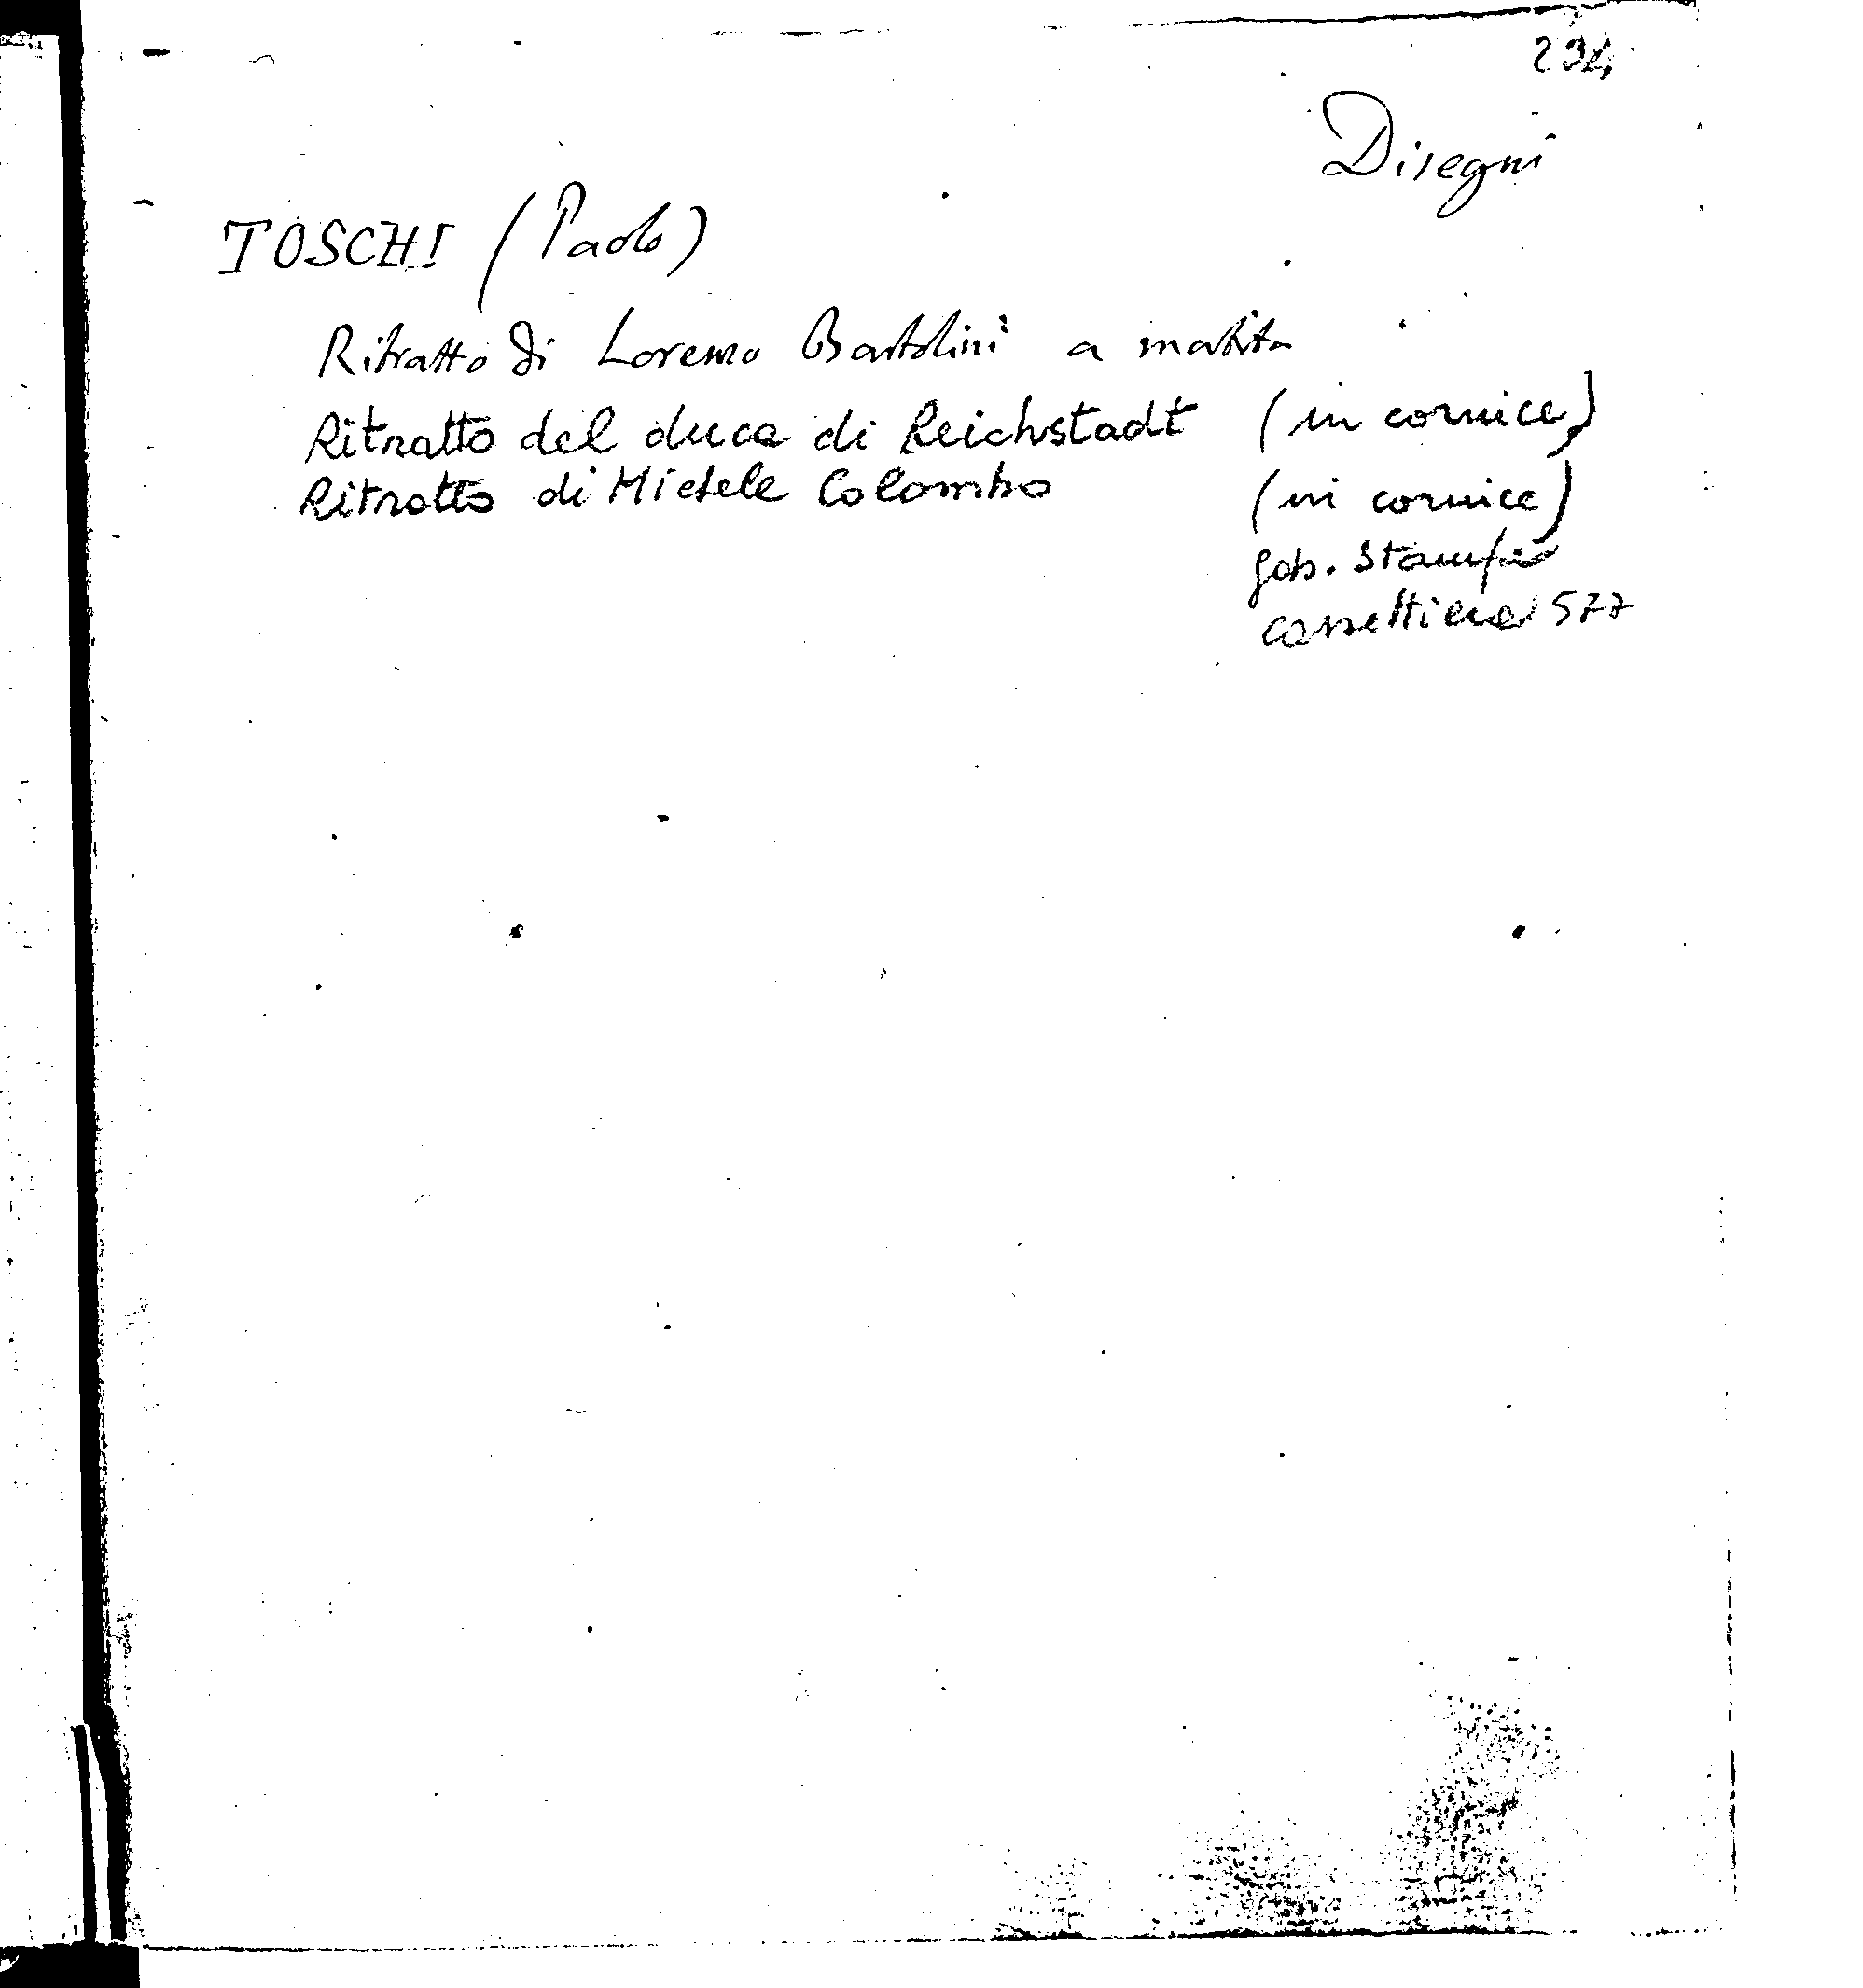 234
Disegni
TOSCHI (Paolo)
Ritratto di Lorenzo Bartolini a matita
Ritratto del duca di Reichstadt (in cornice)
Ritratto di Michele Colombo (in cornice)
gab. Stampe
cassettiera 577